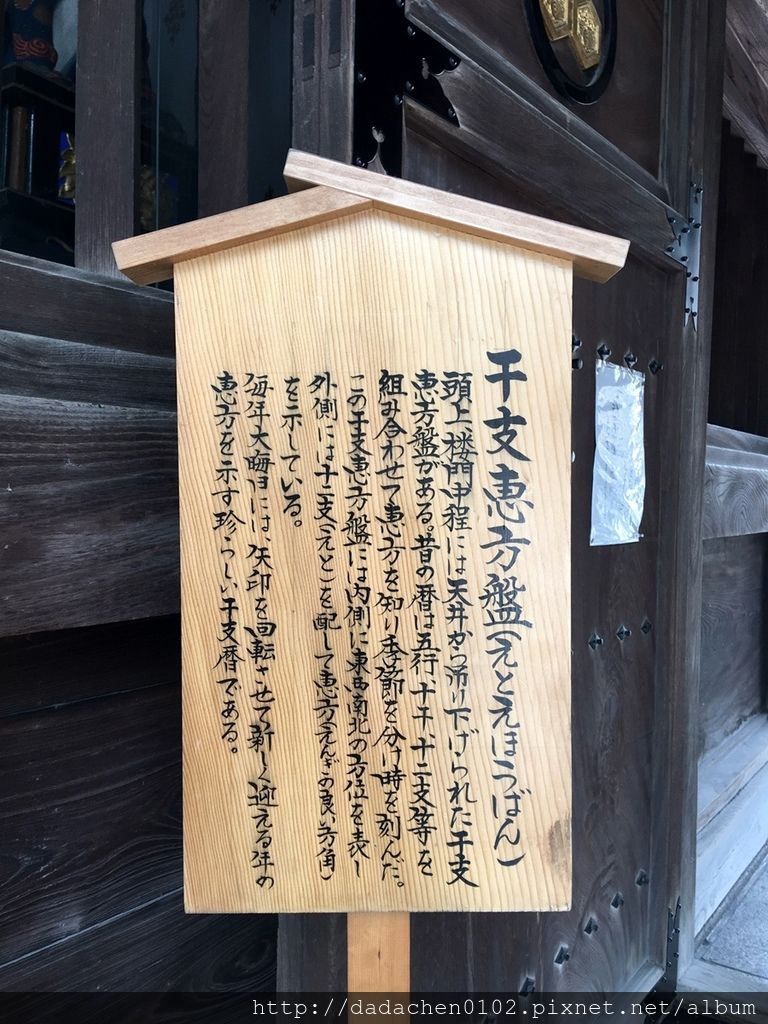 干支恵方盤(えとえほうばん)
頭上、楼門中程には天井から吊り下げられた干支
恵方盤がある。昔の暦は五行、十干、十二支等を
組み合わせて恵方を知り季節を分け時を刻んだ。
この干支恵方盤には内側に東西南北の方位を表し
外側には十二支(えと)を配して恵方(えんぎの良い方角)
を示している。
毎年大晦日には、矢印を回転させて新しく迎える年の
恵方を示す珍らしい干支暦である。
http://dadachen0102.pixnet.net/album